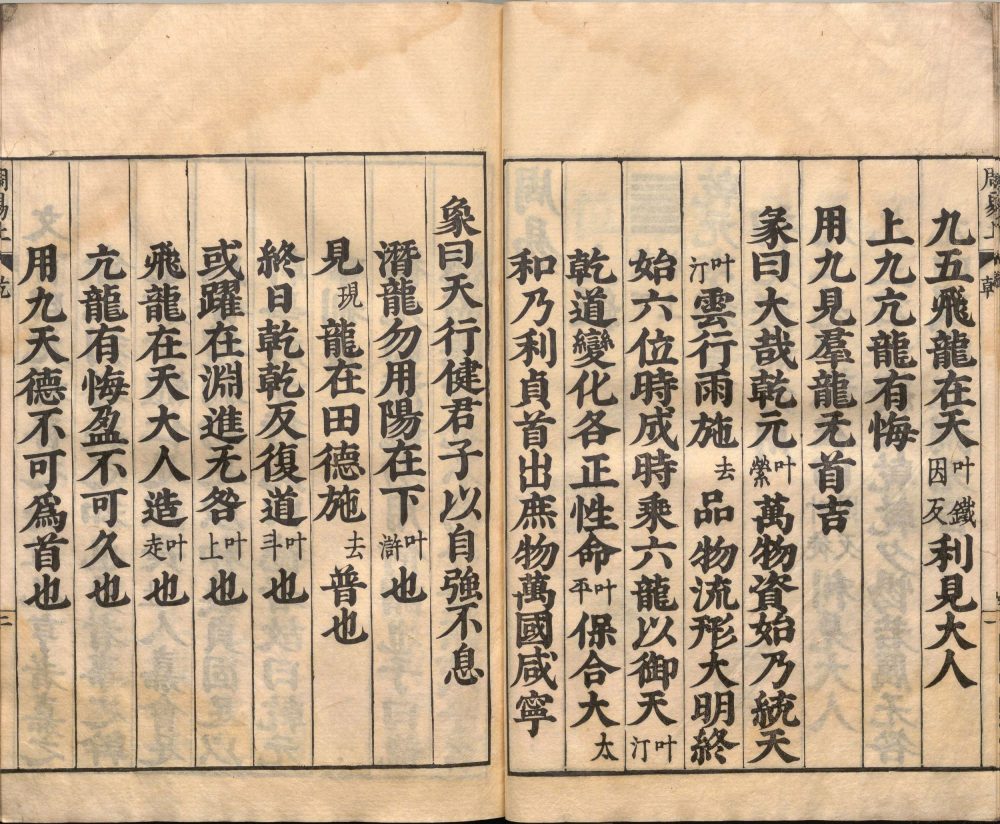 九五飛龍在天叶鐵因反利見大人
上九亢龍有悔
用九見羣龍无首吉
彖曰大哉乾元叶縈萬物資始乃統天
叶汀雲行雨施去品物流形大明終
始六位時成時乘六龍以御天叶汀
乾道變化各正性命叶平保合大太
和乃利貞首出庶物萬國咸寧
象曰天行健君子以自強不息
潛龍勿用陽在下叶滸也
見現龍在田德施去普也
終日乾乾反復道叶斗也
或躍在淵進无咎叶上也
飛龍在天大人造叶走也
亢龍有悔盈不可久也
用九天德不可爲首也
周易上 乾 二